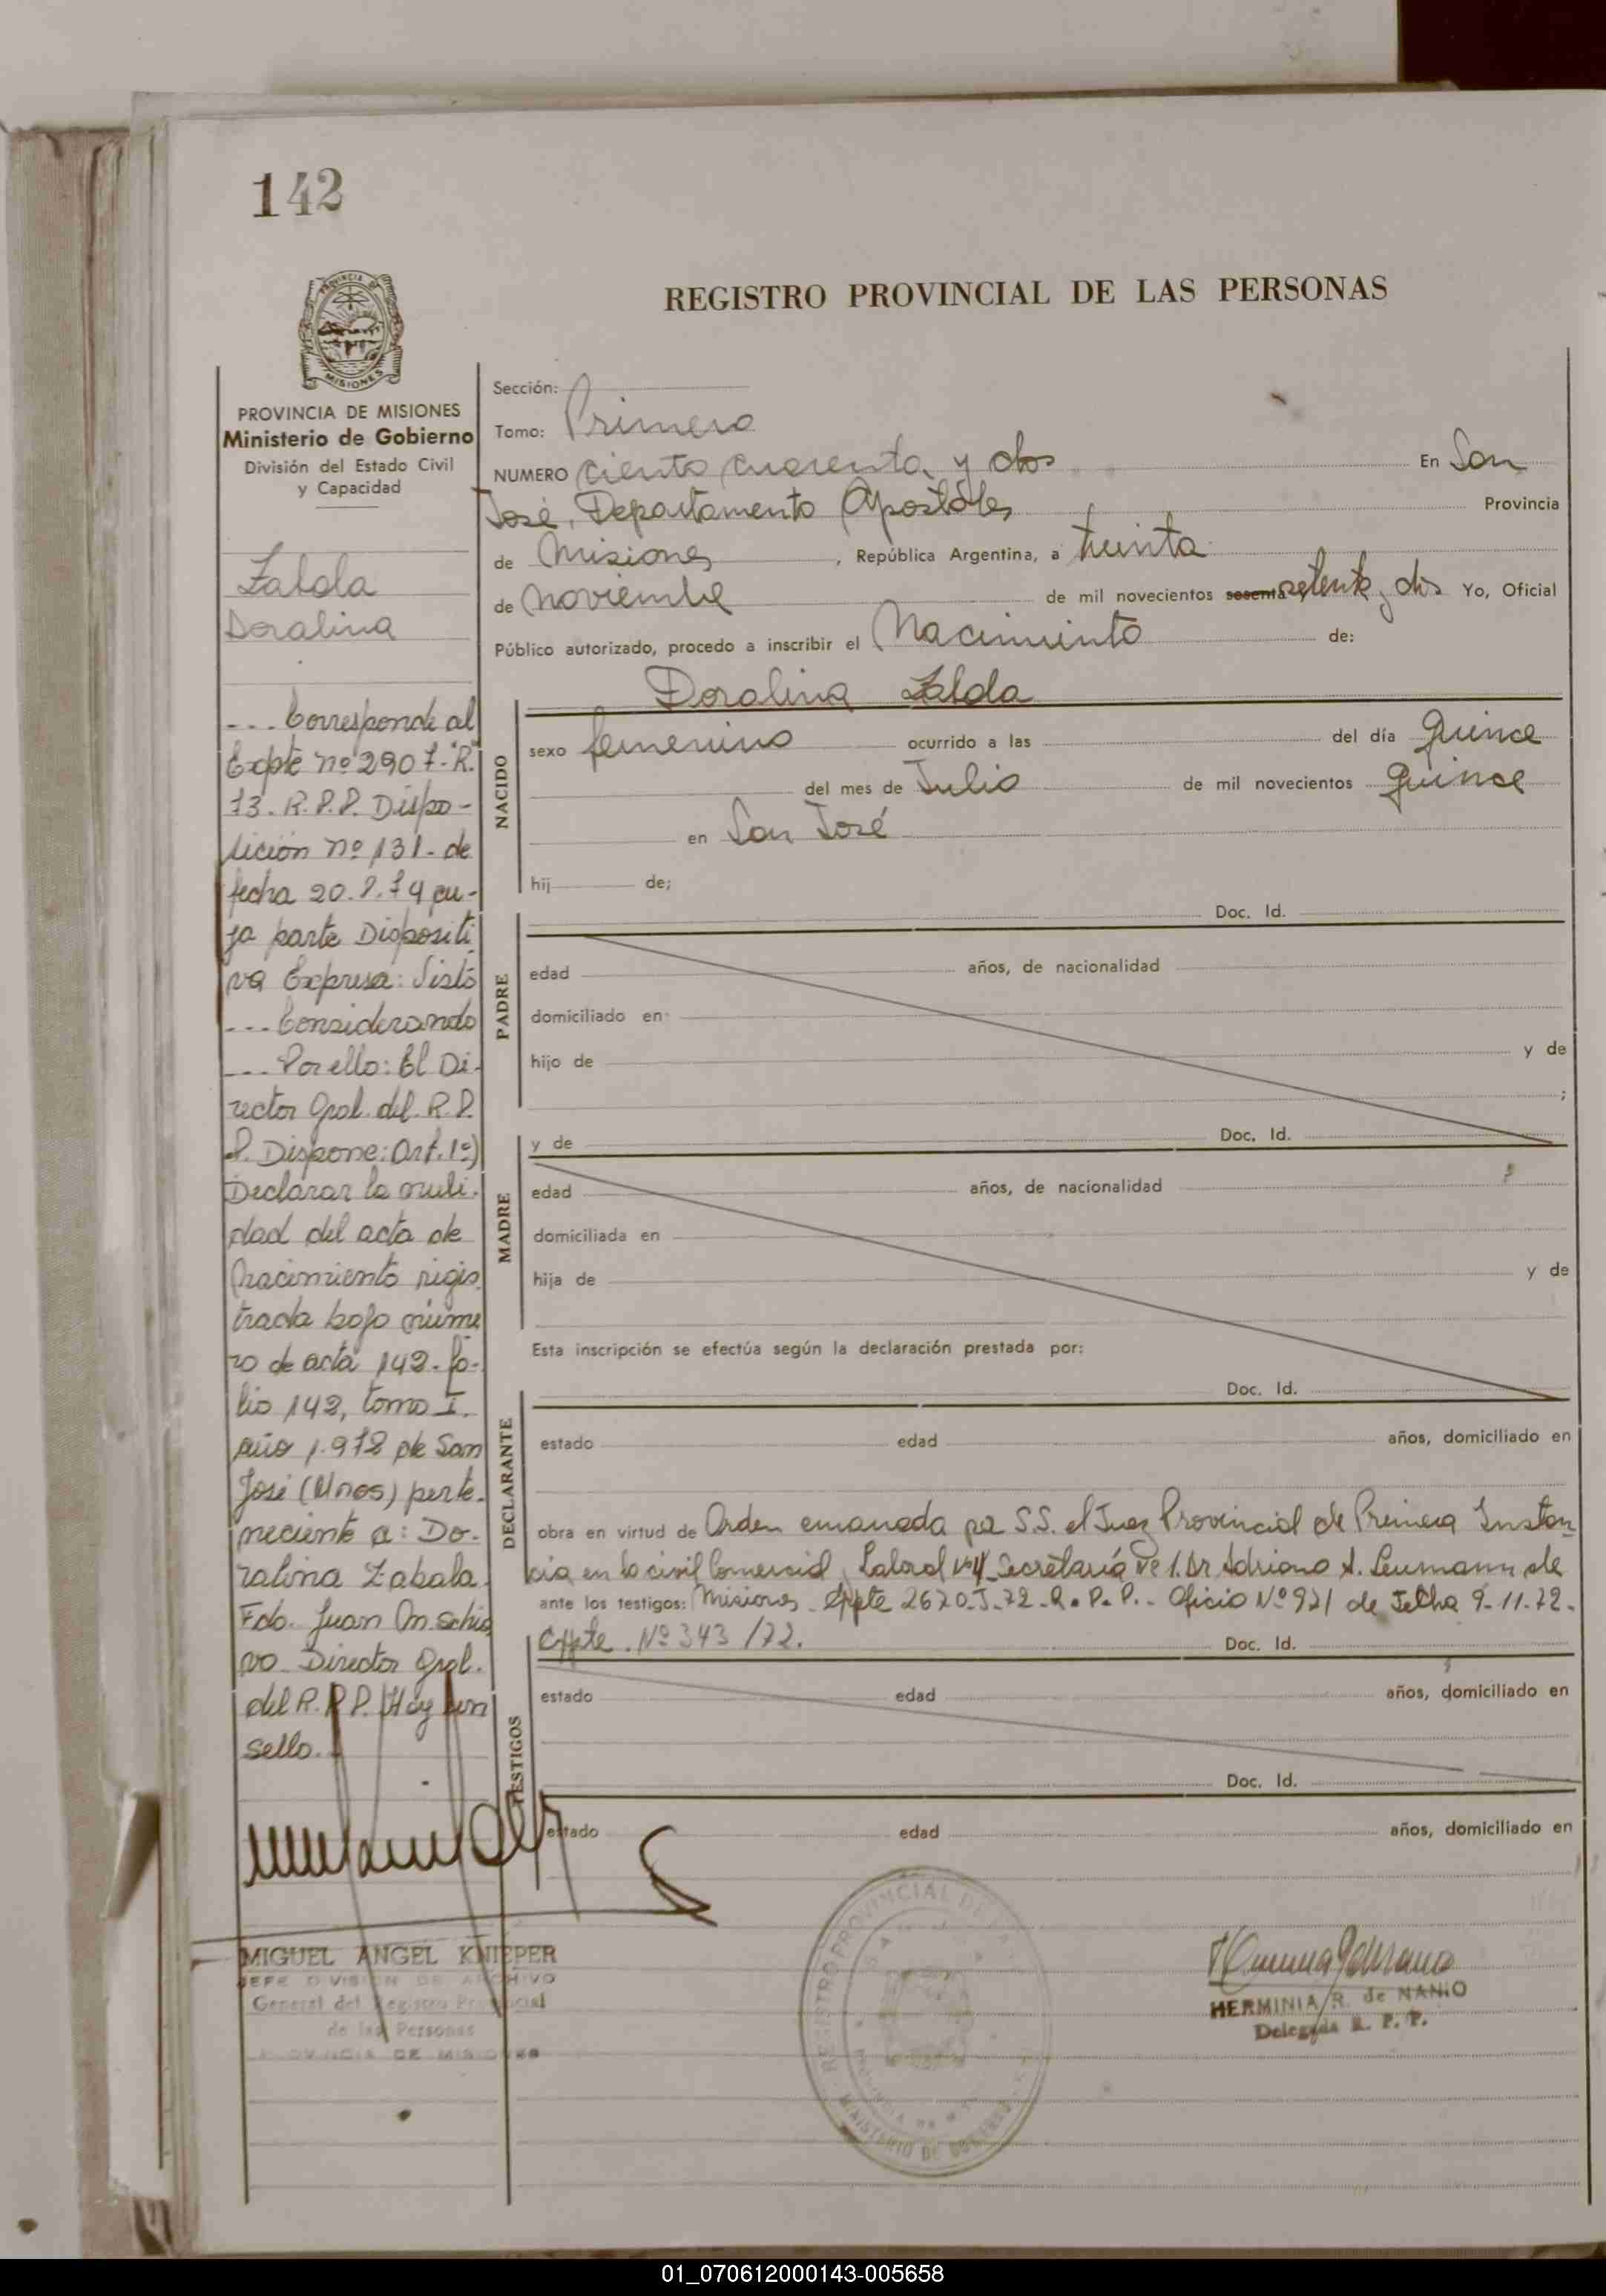 142
REGISTRO PROVINCIAL DE LAS PERSONAS
PROVINCIA DE MISIONES
Ministerio de Gobierno
División del Estado Civil
y Capacidad
Zabala
Doralina
--- Corresponde al
Expte nº 2907-"R"
73. R.P.P. Dispo-
sición nº 131- de
fecha 20.8.74 cu-
ya parte Dispositi
va Expresa: Visto
--- Considerando
--- Por ello: El Di-
rector Gral. del R.P.
P. Dispone: Art. 1º)
Declarar la nuli-
dad del acta de
nacimiento regis
trada bajo núme
ro de acta 142- fo-
lio 142, tomo I.
año 1.972 de San
José (Mnes) perte-
neciente a: Do-
ralina Zabala.
Fdo. Juan M. Schia
vo Director Gral.
del R.P.P. Hay un
sello.
MIGUEL ANGEL KNIEPER
JEFE DIVISION DE ARCHIVO
General del Registro Provincial
de las Personas
PROVINCIA DE MISIONES
Sección:
Tomo: Primero
NUMERO ciento cuarenta y dos En San
José, Departamento Apóstoles Provincia
de Misiones, República Argentina, a treinta
de noviembre de mil novecientos sesenta setenta y dos Yo, Oficial
Público autorizado, procedo a inscribir el Nacimiento de:
Doralina Zabala
NACIDO
sexo femenino ocurrido a las del día quince
del mes de Julio de mil novecientos quince
en San José
hij de;
Doc. Id.
PADRE
edad años, de nacionalidad
domiciliado en
hijo de y de
;
y de Doc. Id.
MADRE
edad años, de nacionalidad
domiciliada en
hija de y de
Esta inscripción se efectúa según la declaración prestada por:
Doc. Id.
DECLARANTE
estado edad años, domiciliado en
obra en virtud de Orden emanada por S.S. el Juez Provincial de Primera Instan
cia en lo civil Comercial y Laboral Secretaría Nº 1. Dr Adriano A. Leumann de
ante los testigos: Misiones. Expte 2670-J-72-R.P.P.- Oficio Nº 921 de fecha 9-11-72-
Expte. Nº 343/72. Doc. Id.
TESTIGOS
estado edad años, domiciliado en
Doc. Id.
estado edad años, domiciliado en
REGISTRO PROVINCIAL DE
MINISTERIO DE GOBIERNO
HERMINIA R. de NANIO
Delegada R. P. P.
01_070612000143-005658